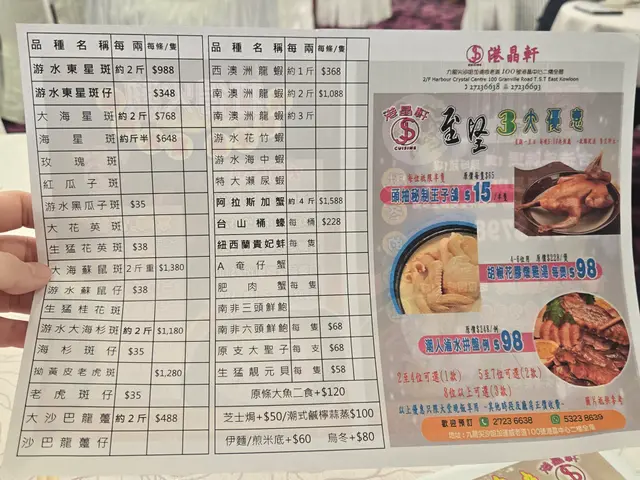 品種名稱 每兩 每條/隻
游水東星斑 約2斤 $988
游水東星斑仔 $348
大海星斑 約2斤 $768
海星斑 約斤半 $648
玫瑰斑
紅瓜子斑
游水黑瓜子斑 $35
大花英斑
生猛花英斑 $38
大海蘇鼠斑 2斤重 $1,380
游水蘇鼠仔 $38
生猛桂花斑
游水大海杉斑 約2斤 $1,180
海杉斑仔 $35
拗黃皮老虎斑 $1,280
老虎斑仔 $35
大沙巴龍躉 約2斤 $488
沙巴龍躉仔
品種名稱 每兩 每條/隻
西澳洲龍蝦 約1斤 $368
南澳洲龍蝦 約2斤 $1,088
南澳洲龍蝦 約3斤
游水花竹蝦
游水海中蝦
特大瀨尿蝦
阿拉斯加蟹 約4斤 $1,588
台山桶蠔 每桶 $228
紐西蘭貴妃蚌 每隻
A奄仔蟹
肥肉蟹 每隻
南非三頭鮮鮑
南非六頭鮮鮑 每隻 $68
原支大聖子 每支 $68
生猛靚元貝 每隻 $58
原條大魚二食+$120
芝士焗+$50/潮式鹹檸蒜蒸$100
伊麵/煎米底+$60 烏冬+$80
港晶軒
CUISINE
九龍尖沙咀加連威老道100號港晶中心二樓全層
2/F Harbour Crystal Centre 100 Granville Road T.S.T East Kowloon
27136638 27136693
港晶軒
CUISINE
至堅3大優惠
每位每枱限半隻 原價每隻$65
頭抽秘制王子鴿 $15/半隻
4-6位用 原價$228/煲
胡椒花膠響螺雞湯 每煲$98
原價$248/例
潮人滷水拼盤例$98
2至4位可選(1款) 5至7位可選(2款)
8位以上可選(3款)
圖片祗供參考
歡迎預訂 2723 6638 5323 8639
地址：九龍尖沙咀加連威老道100號港晶中心二樓全層
港晶軒